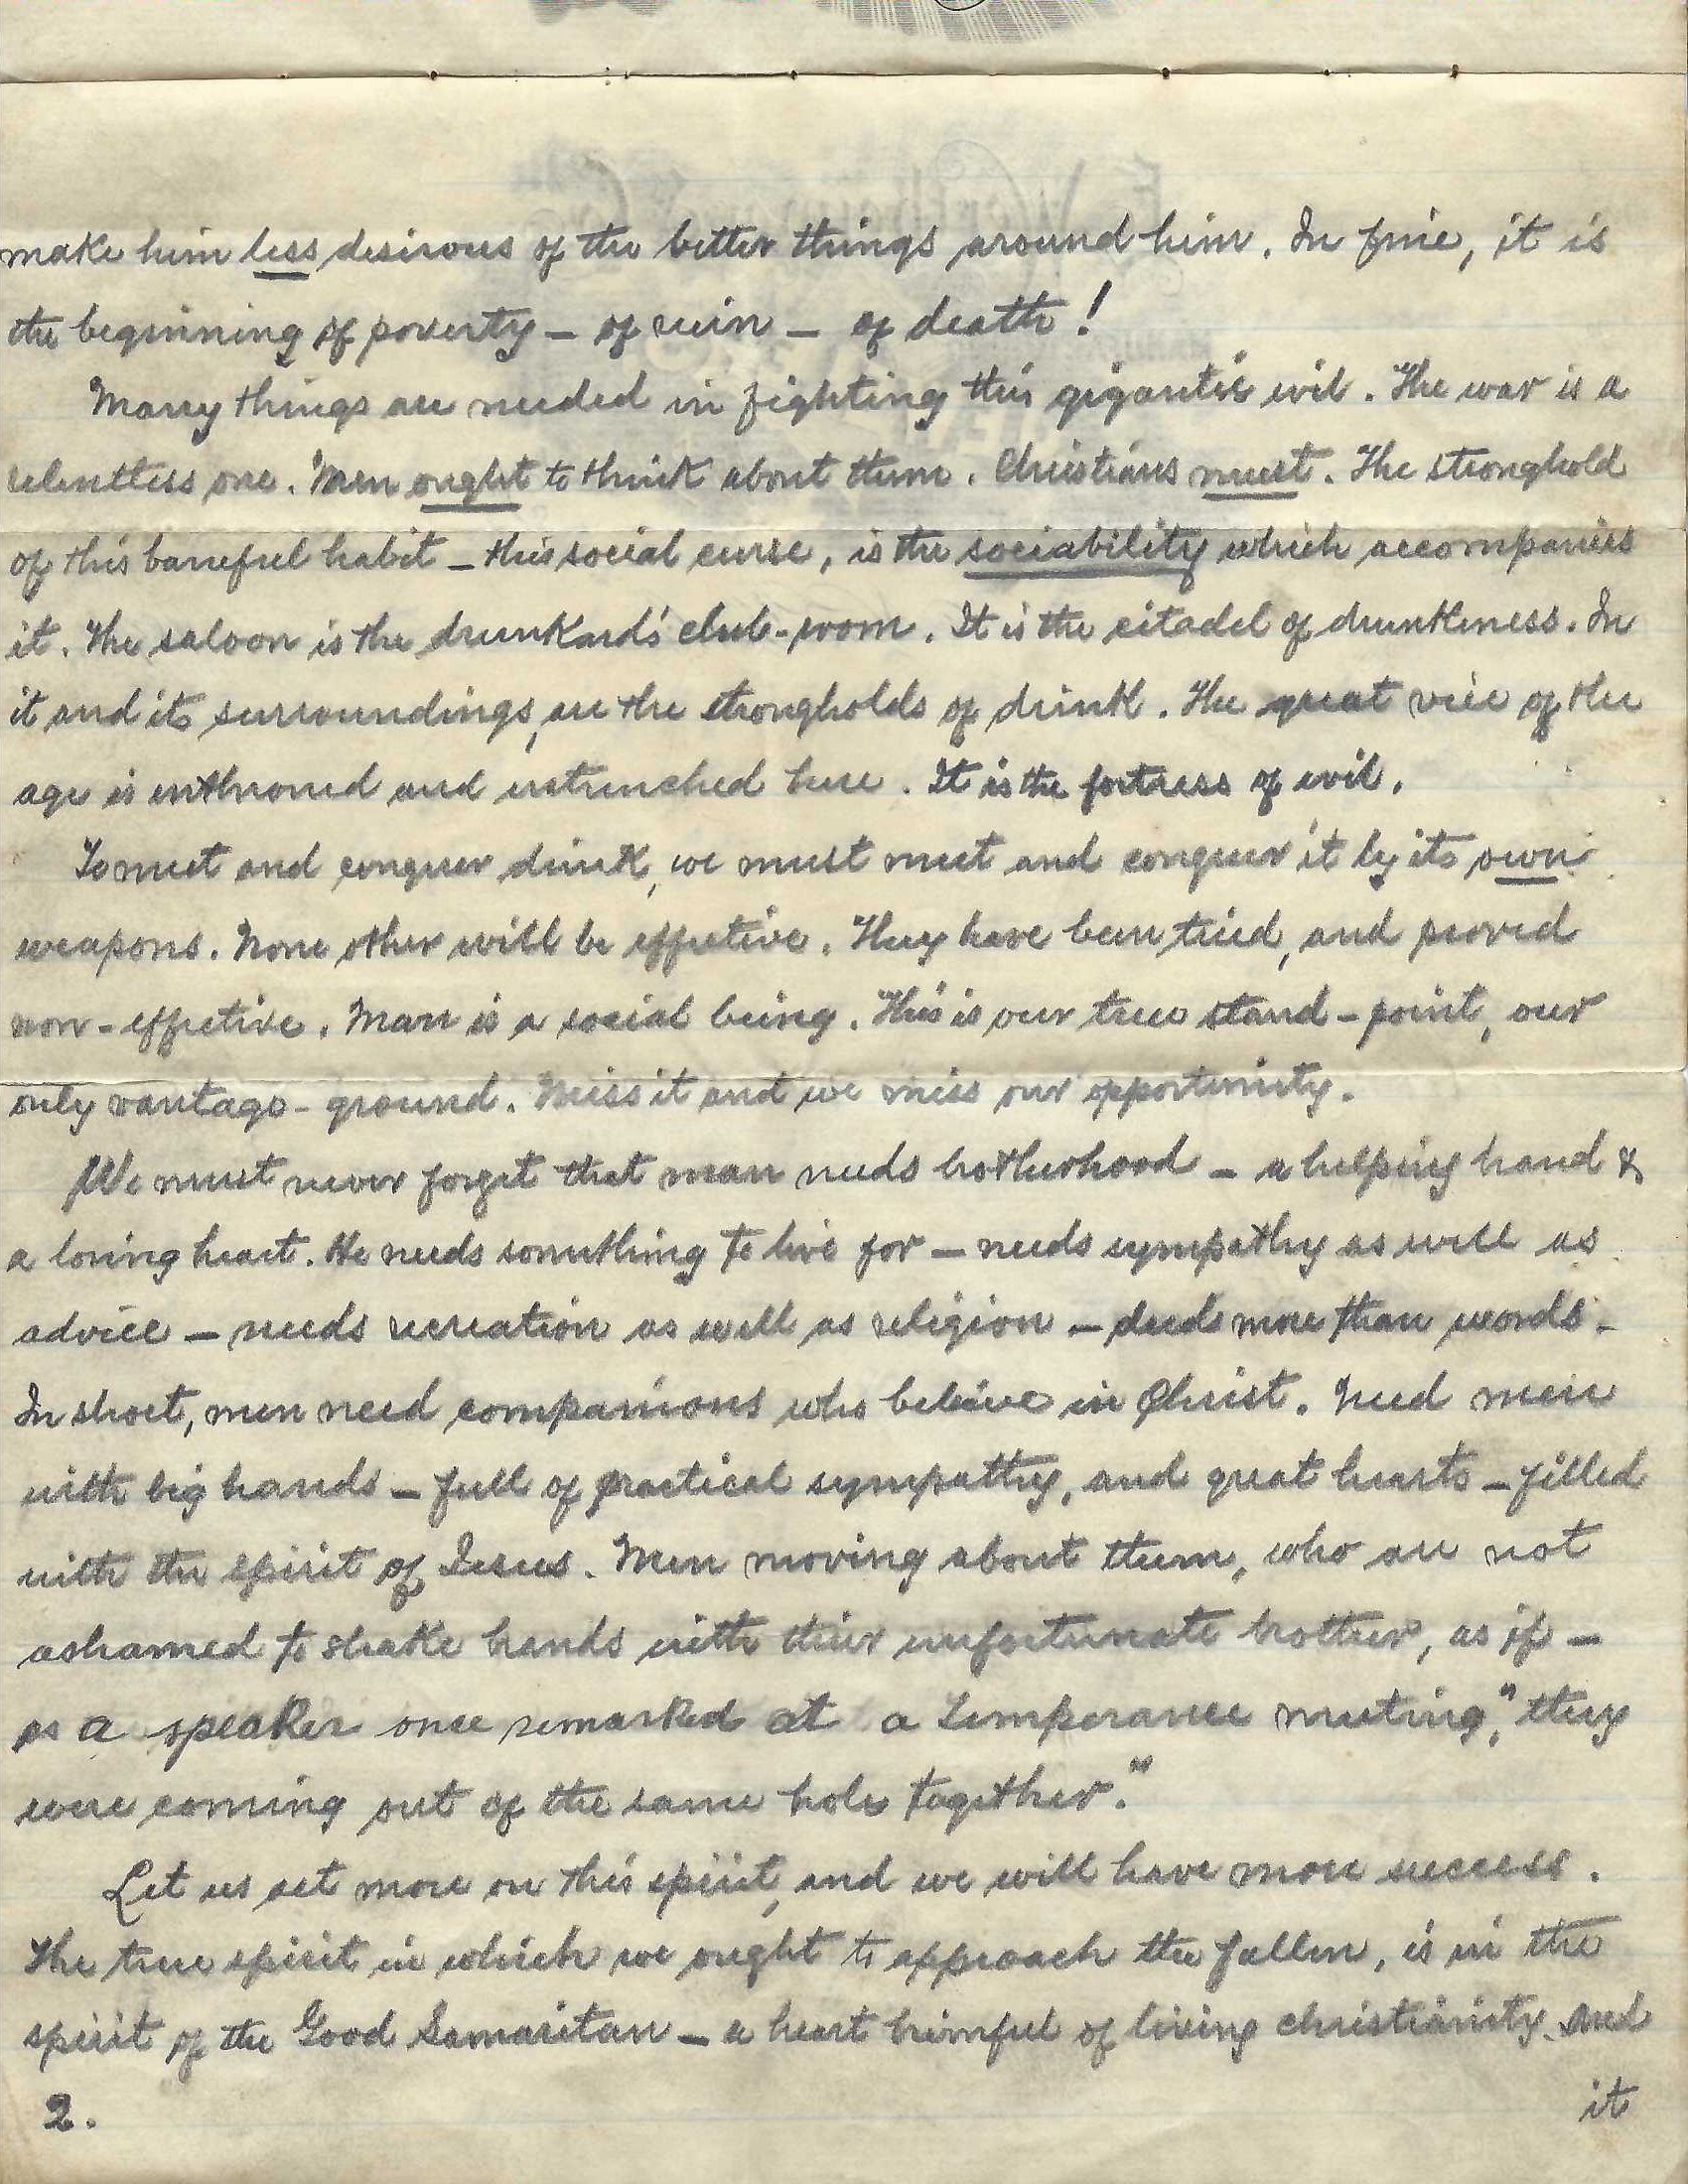 make him less desirous of the better things around him. In fine, it is
the beginning of poverty – of ruin – of death!
Many things are needed in fighting this gigantic evil. The war is a
relentless one. Men ought to think about them. Christians must. The stronghold
of this baneful habit – this social curse, is the sociability which accompanies
it. The saloon is the drunkard's club-room. It is the citadel of drunkeness. In
it and its surroundings, are the strongholds of drink. The great vice of the
age is enthroned and entrenched here. It is the fortress of evil.
To meet and conquer drink, we must meet and conquer it by its own
weapons. None other will be effective. They have been tried, and proved
non-effective. Man is a social being. This is our true stand-point, our
only vantage-ground. Miss it and we miss our opportunity.
We must never forget that man needs brotherhood – a helping hand &
a loving heart. He needs something to live for – needs sympathy as well as
advice – needs recreation as well as religion – deeds more than words.
In short, men need companions who believe in Christ. Need men
with big hands – full of practical sympathy, and great hearts – filled
with the spirit of Jesus. Men moving about them, who are not
ashamed to shake hands with their unfortunate brother, as if –
as a speaker once remarked at a Temperance meeting, "they
were coming out of the same hole together."
Let us act more on this spirit, and we will have more success.
The true spirit in which we ought to approach the fallen, is in the
spirit of the Good Samaritan – a heart brimful of living christianity. And
2. it